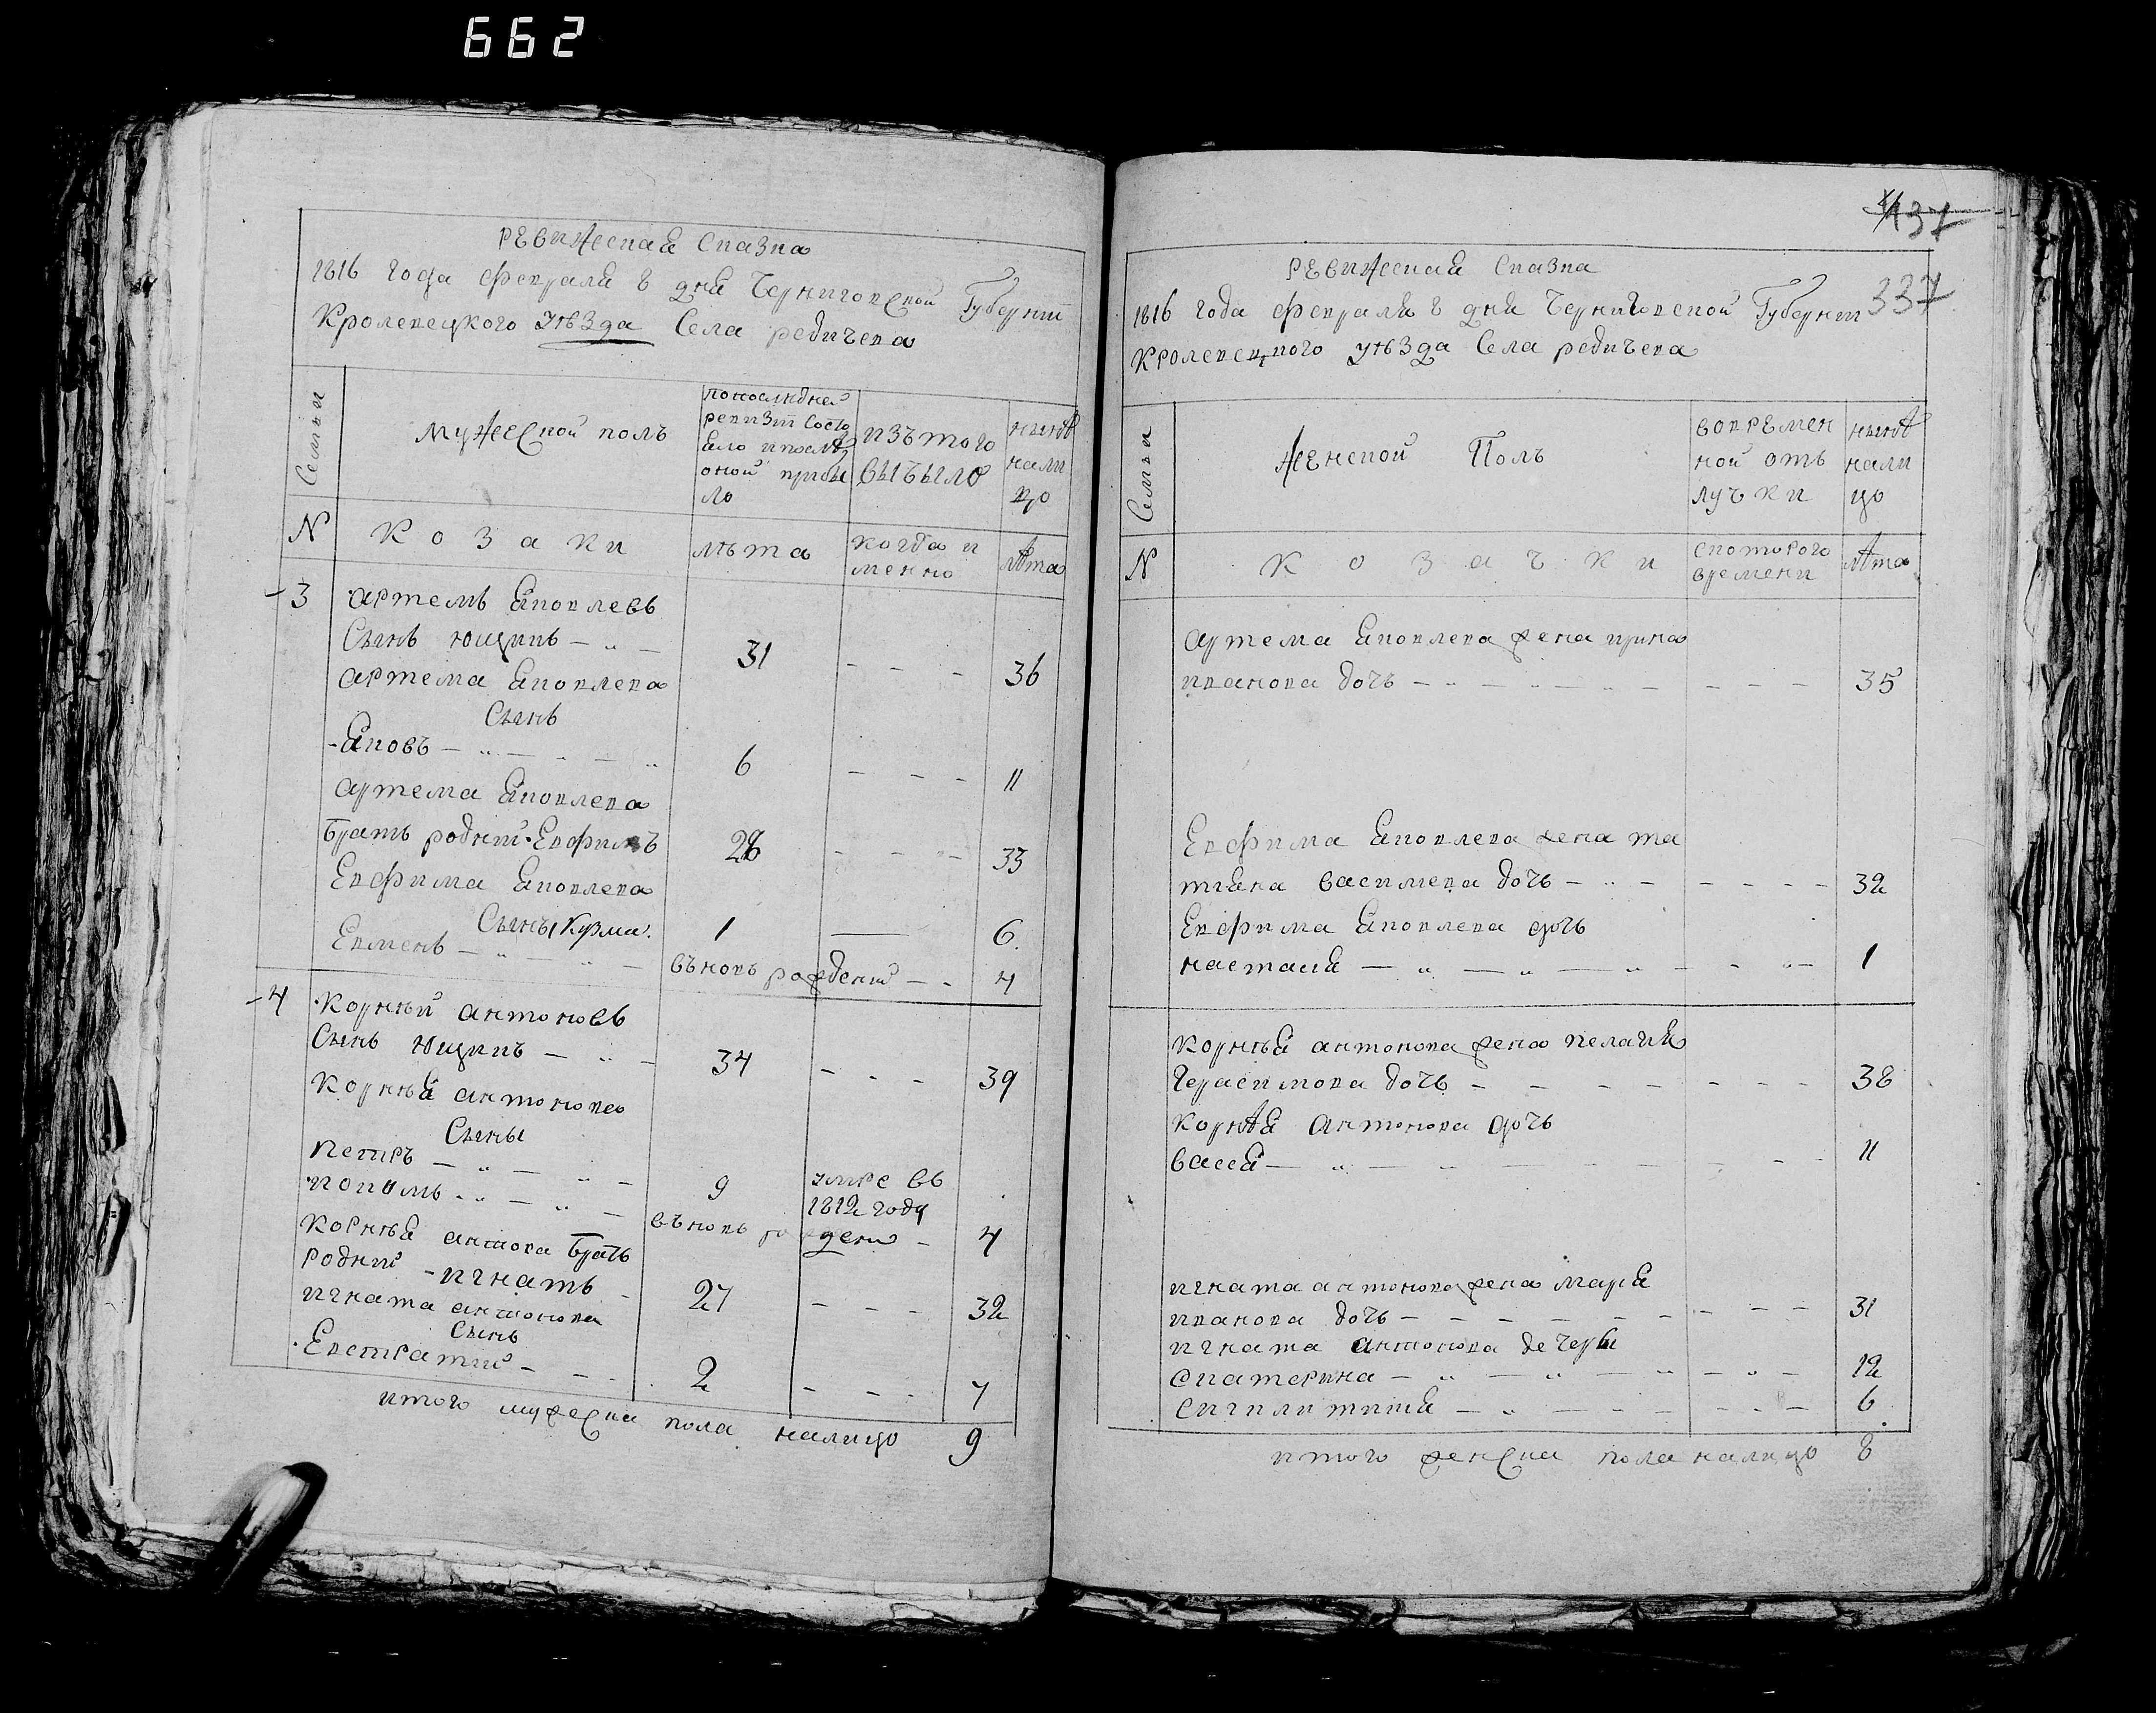 662
Ревижская Сказка
1816 года февраля 8 дня Черниговской Губернии
Кролевецкого уезда Села редичева
Семьи
Мужеской полъ
попоследней
ревизии состо
яло и после
оной прибы
ло
изъ того
выбыло
ныне
нали
цо
N
Козаки
лѣта
когда и
менно
лѣта
3
артемъ Яковлевъ
Сынъ Ющикъ
31
36
артема Яковлева
Сынъ
Яковъ
6
11
артема Яковлева
братъ родний Евфимъ
28
33
Евфима Яковлева
Сыны Кузма
1
6
Евменъ
въновь рожденій
4
4
Корній антоновъ
Сынъ Ющикъ
34
39
Корнѣя антонова
Сыны
Петръ
9
умре въ
1812 году
въновь
4
Корнѣя антонова братъ
родний игнатъ
27
32
игната антонова
Сынъ
Евстратий
2
7
итого мужеска пола налицо 9
437
337
Ревижская Сказка
1816 года февраля 8 дня Черниговской Губернии
Кролевецкого уѣзда Села редичева
Семьи
Женской Полъ
вовремен
ной отъ
лучки
нынѣ
нали
цо
N
Козачки
скоторого
времени
лѣта
артема Яковлева жена ирина
иванова дочь
35
Евфима Яковлева жена та
тияна василиева дочь
32
Евфима Яковлева дочь
настасия
1
Корнѣя антонова жена пелагия
Герасимова дочь
38
Корнѣя антонова дочь
васса
11
игната антонова жена мария
иванова дочь
31
игната антонова дочеры
Екатерина
12
6
итого женска пола налицо 8